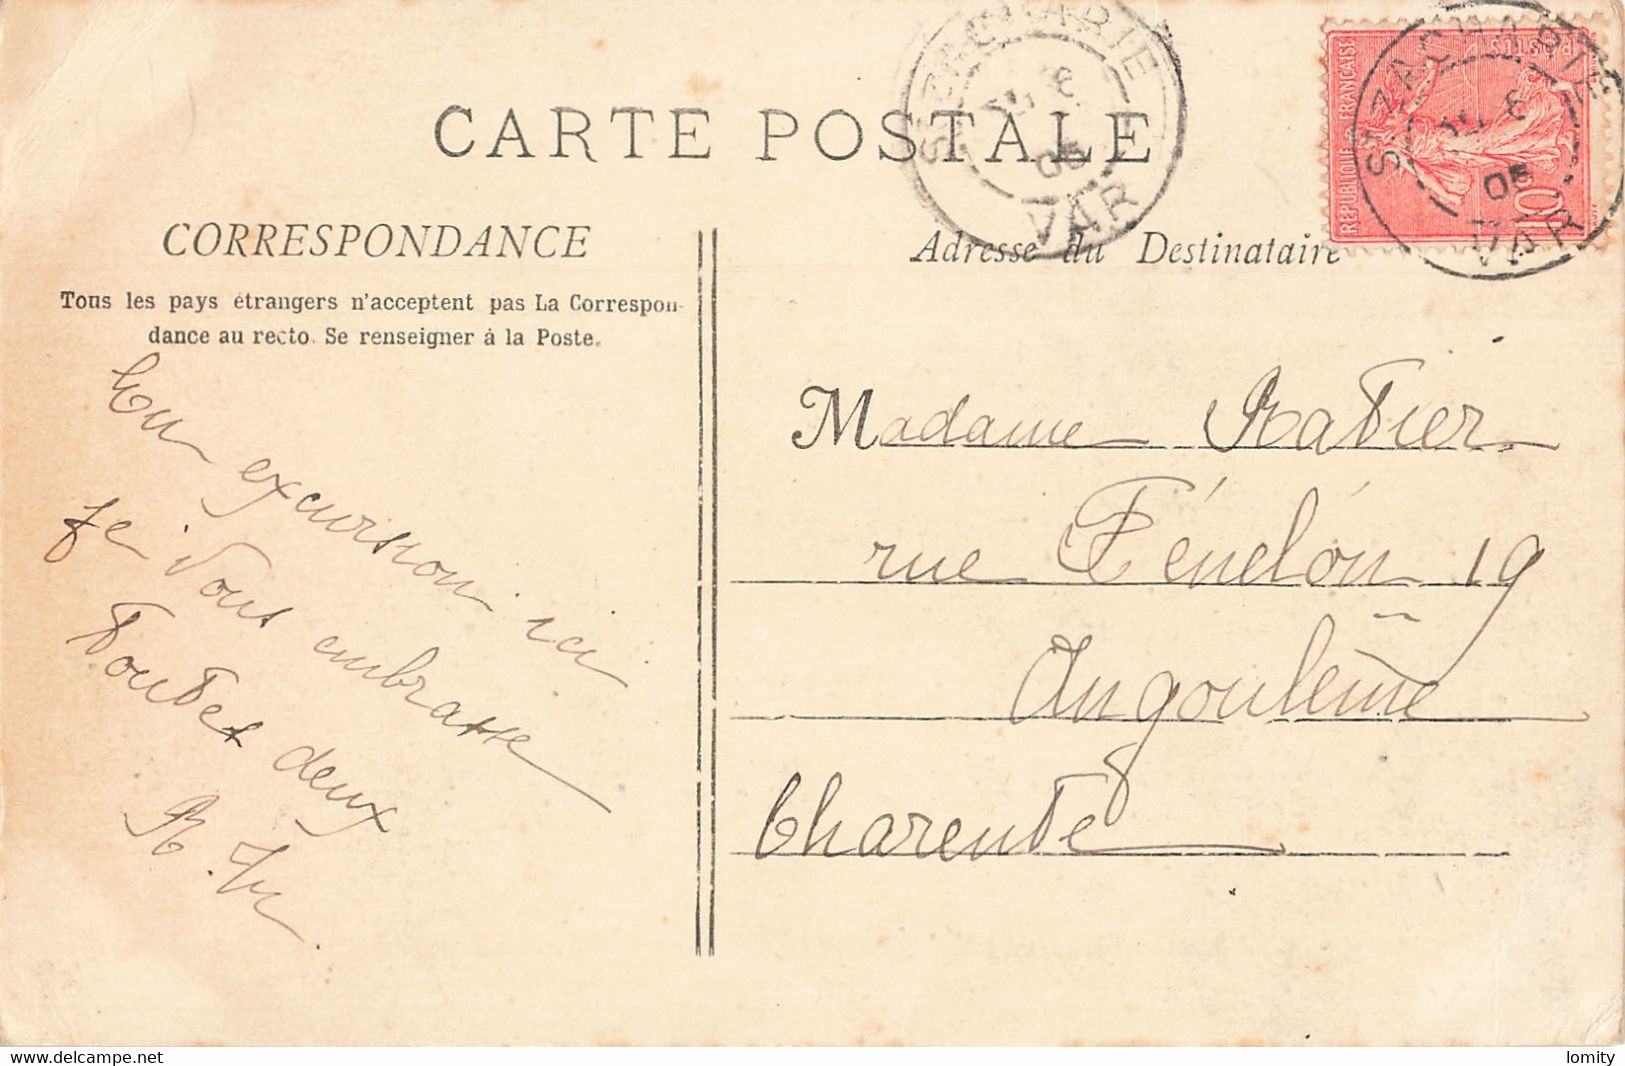 CARTE POSTALE
CORRESPONDANCE
Tous les pays étrangers n'acceptent pas La Correspon-
dance au recto. Se renseigner à la Poste.
En excursion ici
je vous embrasse
toutes deux
Adresse du Destinataire
Madame Ratier
rue Fénelon 19
Angoulême
Charente
ST ZACHARIE
3
05
VAR
REPUBLIQUE FRANÇAISE
POSTES
10
ST ZACHARIE
3
05
VAR
www.delcampe.net
lomity